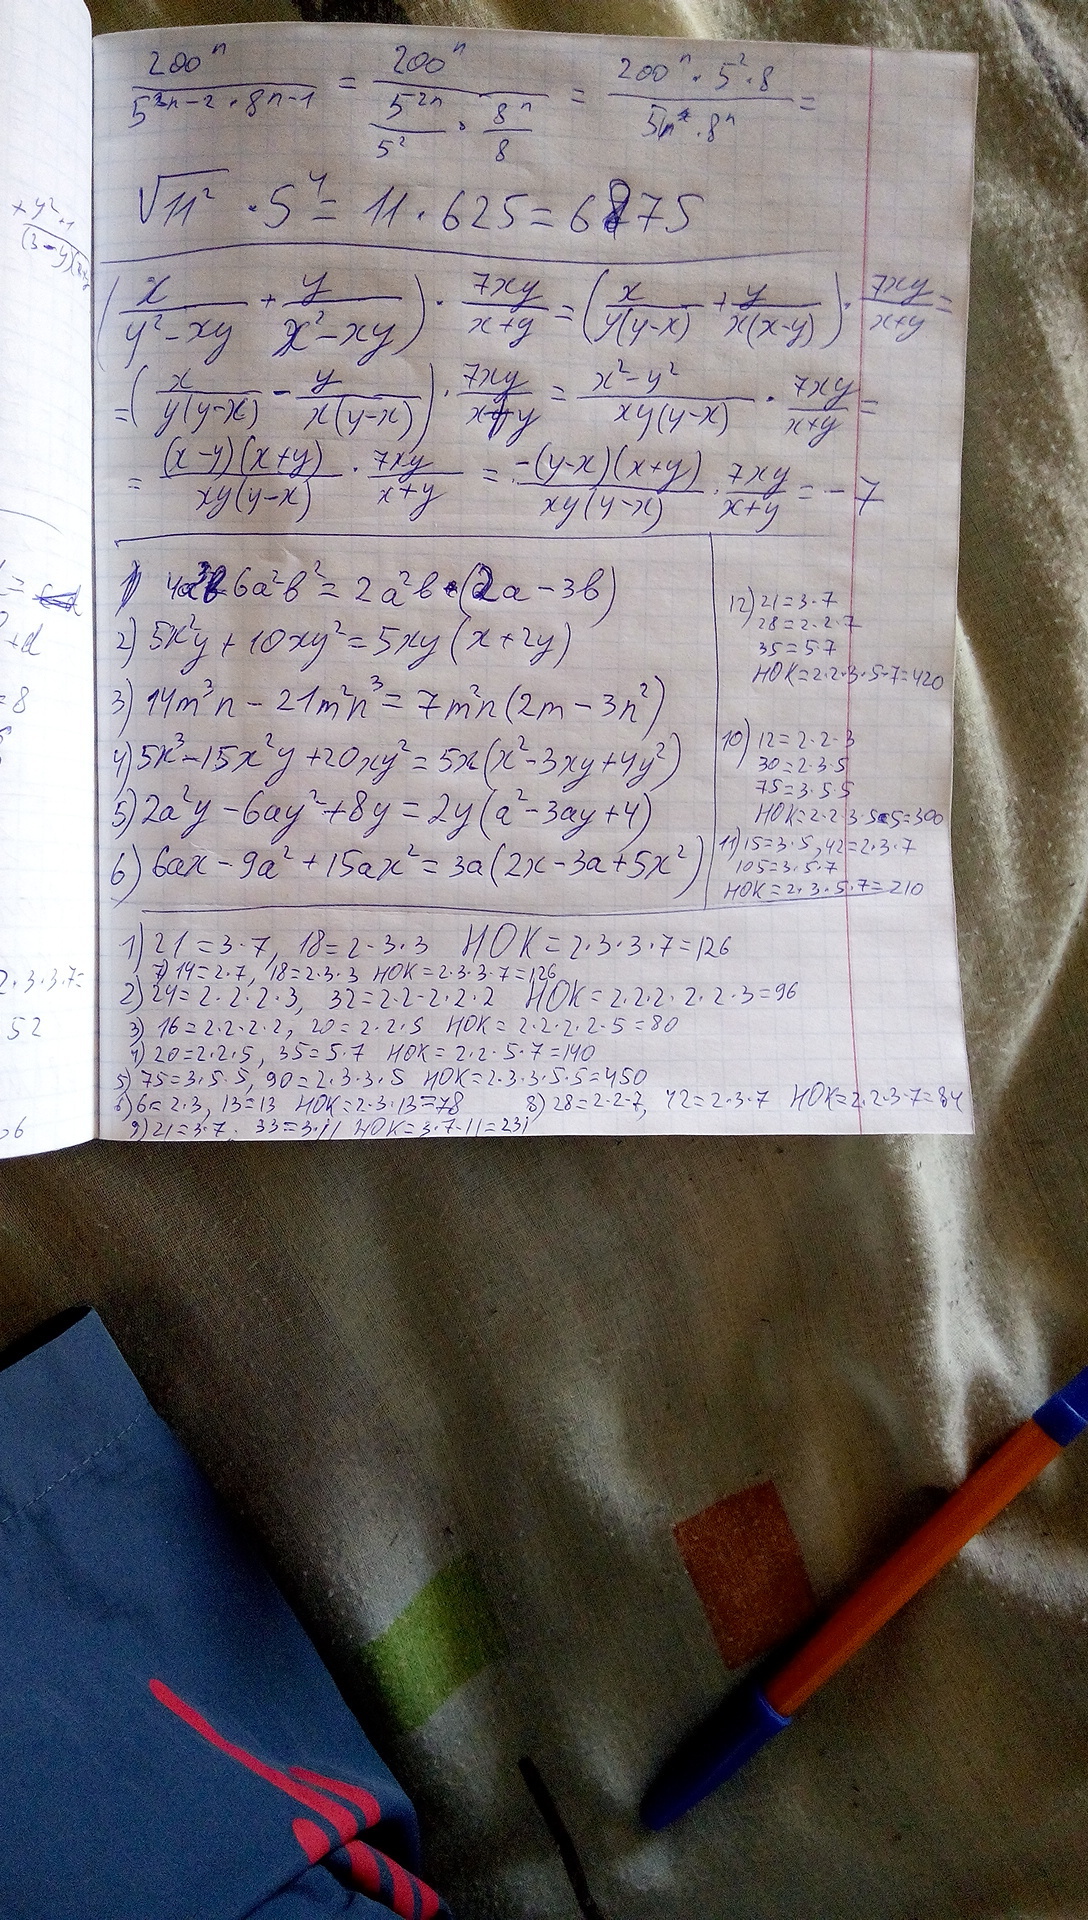 200ⁿ/(5²ⁿ⁻² · 8ⁿ⁻¹) = 200ⁿ/(5²ⁿ/5² · 8ⁿ/8) = (200ⁿ · 5² · 8)/(5 · 8ⁿ) =
√11² · 5⁴ = 11 · 625 = 6875
(x/(y²-xy) + y/(x²-xy)) · 7xy/(x+y) = (x/(y(y-x)) + y/(x(x-y))) · 7xy/(x+y) =
= (x/(y(y-x)) - y/(x(y-x))) · 7xy/(x+y) = (x²-y²)/(xy(y-x)) · 7xy/(x+y) =
= (x-y)(x+y)/(xy(y-x)) · 7xy/(x+y) = -(y-x)(x+y)/(xy(y-x)) · 7xy/(x+y) = -7
1) 4a³b-6a²b² = 2a²b · (2a-3b)
2) 5x²y + 10xy² = 5xy (x+2y)
3) 14m³n - 21m²n³ = 7m²n(2m-3n²)
4) 5x³-15x²y+20xy² = 5x(x²-3xy+4y²)
5) 2a²y-6ay²+8y = 2y(a²-3ay+4)
6) 6ax-9a²+15ax² = 3a(2x-3a+5x²)
12) 21=3·7
28=2·2·7
35=5·7
НОК=2·2·3·5·7=420
10) 12=2·2·3
30=2·3·5
75=3·5·5
НОК=2·2·3·5·5=300
11) 15=3·5, 42=2·3·7
105=3·5·7
НОК=2·3·5·7=210
1) 21=3·7, 18=2·3·3 НОК=2·3·3·7=126
7) 14=2·7, 18=2·3·3 НОК=2·3·3·7=126
2) 24=2·2·2·3, 32=2·2·2·2·2 НОК=2·2·2·2·2·3=96
3) 16=2·2·2·2, 20=2·2·5 НОК=2·2·2·2·5=80
4) 20=2·2·5, 35=5·7 НОК=2·2·5·7=140
5) 75=3·5·5, 90=2·3·3·5 НОК=2·3·3·5·5=450
6) 6=2·3, 13=13 НОК=2·3·13=78 8) 28=2·2·7, 42=2·3·7 НОК=2·2·3·7=84
9) 21=3·7, 33=3·11 НОК=3·7·11=231
+y²
=8
+d
2·3·3·7=
52